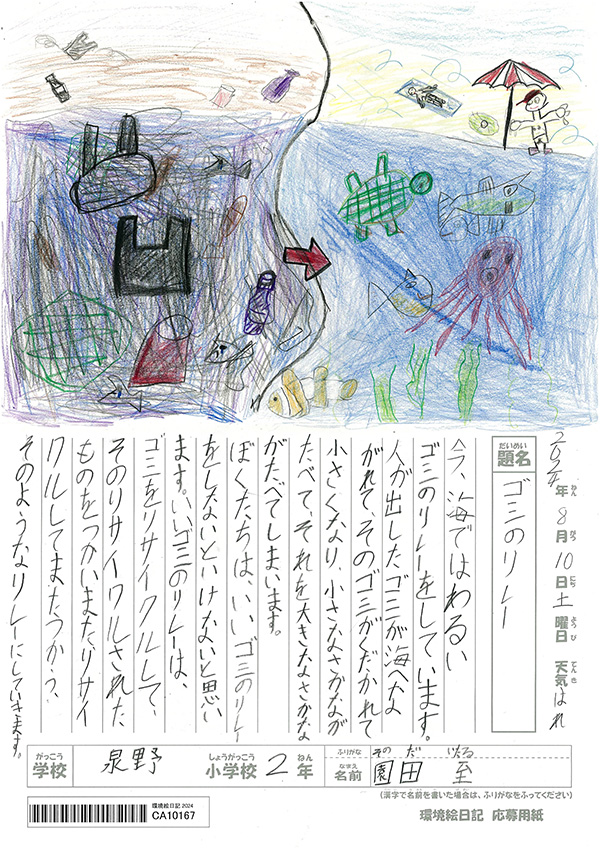 2024年8月10日土曜日 天気はれ
ねん がつ にち ようび てんき
だいめい
題名
ゴミのリレー
今、海ではわるい
ゴミのリレーをしています。
人が出したゴミが海へな
がれて、そのゴミがくだかれて
小さくなり、小さなさかなが
たべて、それを大きなさかな
がたべてしまいます。
ぼくたちは、いいゴミのリレー
をしないといけないと思い
ます。いいゴミのリレーは、
ゴミをリサイクルして、
そのリサイクルされた
ものをつかいまたリサイ
クルしてまたつかう、
そのようなリレーにしていきます。
がっこう
学校
泉野
しょうがっこう
小学校
2
ねん
年
ふりがな
そのだ いたる
なまえ
名前
園田 至
(漢字で名前を書いた場合は、ふりがなをふってください)
環境絵日記 2024
CA10167
環境絵日記 応募用紙